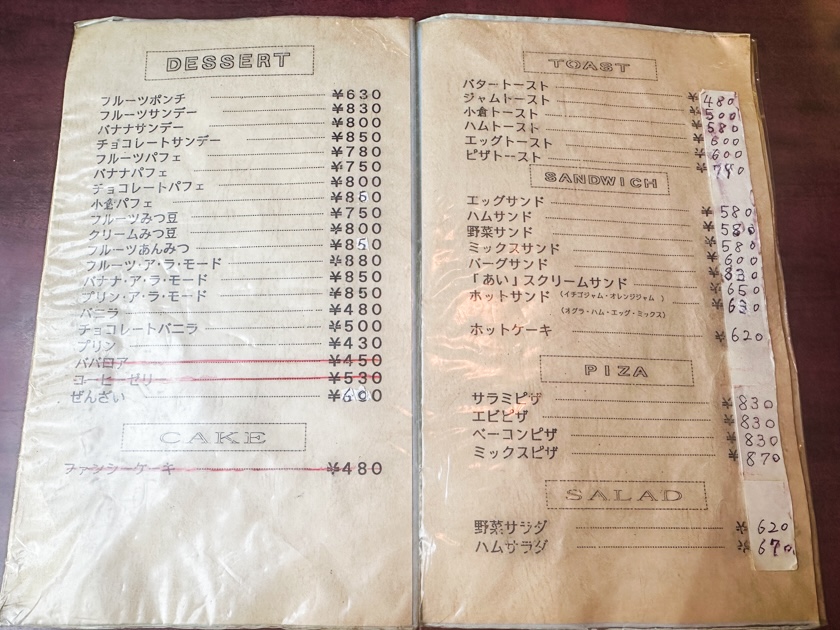 DESSERT
フルーツポンチ ¥630
フルーツサンデー ¥830
バナナサンデー ¥800
チョコレートサンデー ¥850
フルーツパフェ ¥780
バナナパフェ ¥750
チョコレートパフェ ¥800
小倉パフェ ¥850
フルーツみつ豆 ¥750
クリームみつ豆 ¥800
フルーツあんみつ ¥850
フルーツ・ア・ラ・モード ¥880
バナナ・ア・ラ・モード ¥850
プリン・ア・ラ・モード ¥850
バニラ ¥480
チョコレートバニラ ¥500
プリン ¥430
ババロア ¥450
コーヒーゼリー ¥530
ぜんざい ¥690
CAKE
ファンシーケーキ ¥480
TOAST
バタートースト ¥480
ジャムトースト ¥500
小倉トースト ¥580
ハムトースト ¥600
エッグトースト ¥600
ピザトースト
SANDWICH
エッグサンド ¥580
ハムサンド ¥580
野菜サンド ¥580
ミックスサンド ¥600
バーグサンド ¥830
「あい」スクリームサンド ¥650
ホットサンド (イチゴジャム・オレンジジャム ) ¥630
(オグラ・ハム・エッグ・ミックス)
ホットケーキ ¥620
PIZA
サラミピザ ¥830
エビピザ ¥830
ベーコンピザ ¥830
ミックスピザ ¥870
SALAD
野菜サラダ ¥620
ハムサラダ ¥670